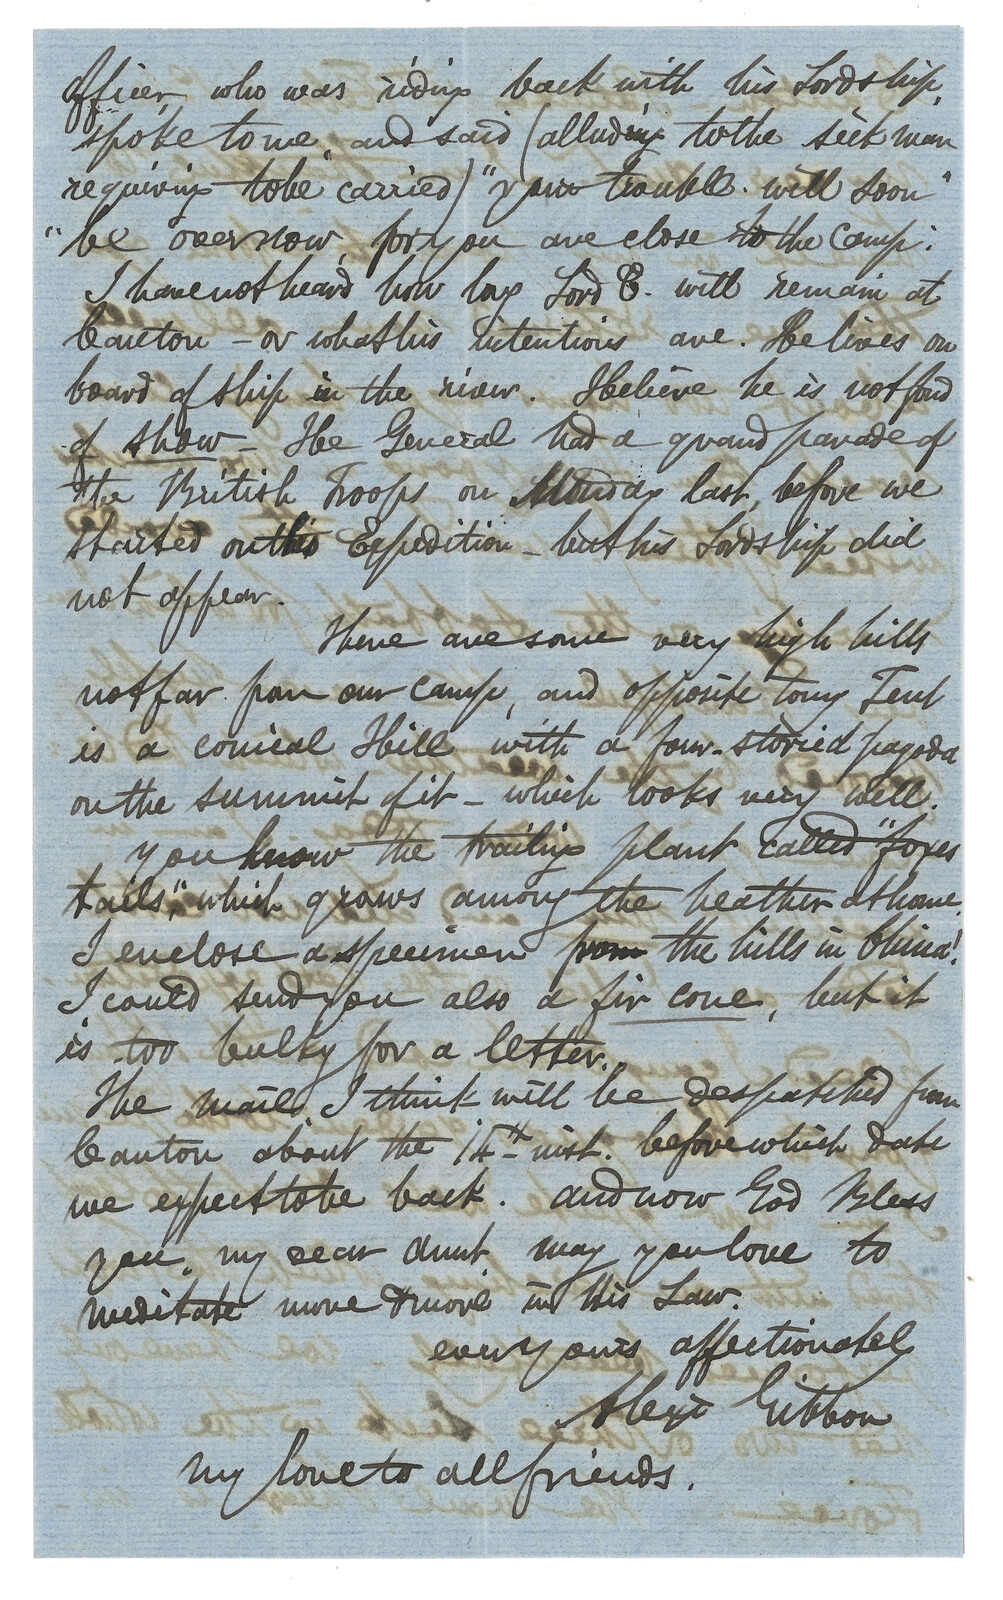 Officer, who was riding back with his Lordship,
spoke to me, and said (alluding to the sick man
requiring to be carried) "your trouble will soon"
"be over now, for you are close to the Camp."
I have not heard how long Lord E. will remain at
Canton – or what his intentions are. He lives on
board of ship in the river. I believe he is not fond
of show – The General had a grand parade of
the British Troops on Monday last, before we
started on this Expedition – but his Lordship did
not appear.
There are some very high hills
not far from our camp, and opposite to my Tent
is a conical Hill with a four-storied pagoda
on the summit of it – which looks very well.
You know the trailing plant called "foxes
tails", which grows among the heather at home.
I enclose a specimen from the hills in China!
I could send you also a fir cone, but it
is too bulky for a letter.
The mail, I think will be despatched from
Canton about the 14th inst. before which date
we expect to be back. And now God Bless
you, my dear Aunt, may you love to
meditate more & more in His Law.
ever yours affectionately
Alexr Gibbon
My love to all friends.